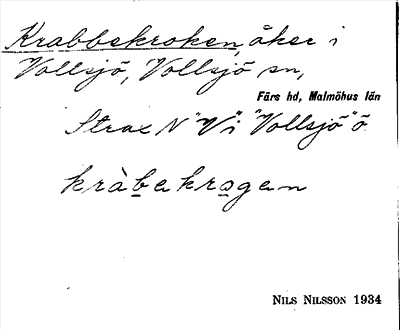 Krabbekroken, åker i
Vollsjö, Vollsjö sn,
Färs hd, Malmöhus län
Strax N "V" i "Vollsjö" ö.
kràb̲ekro̲gen
NILS NILSSON 1934